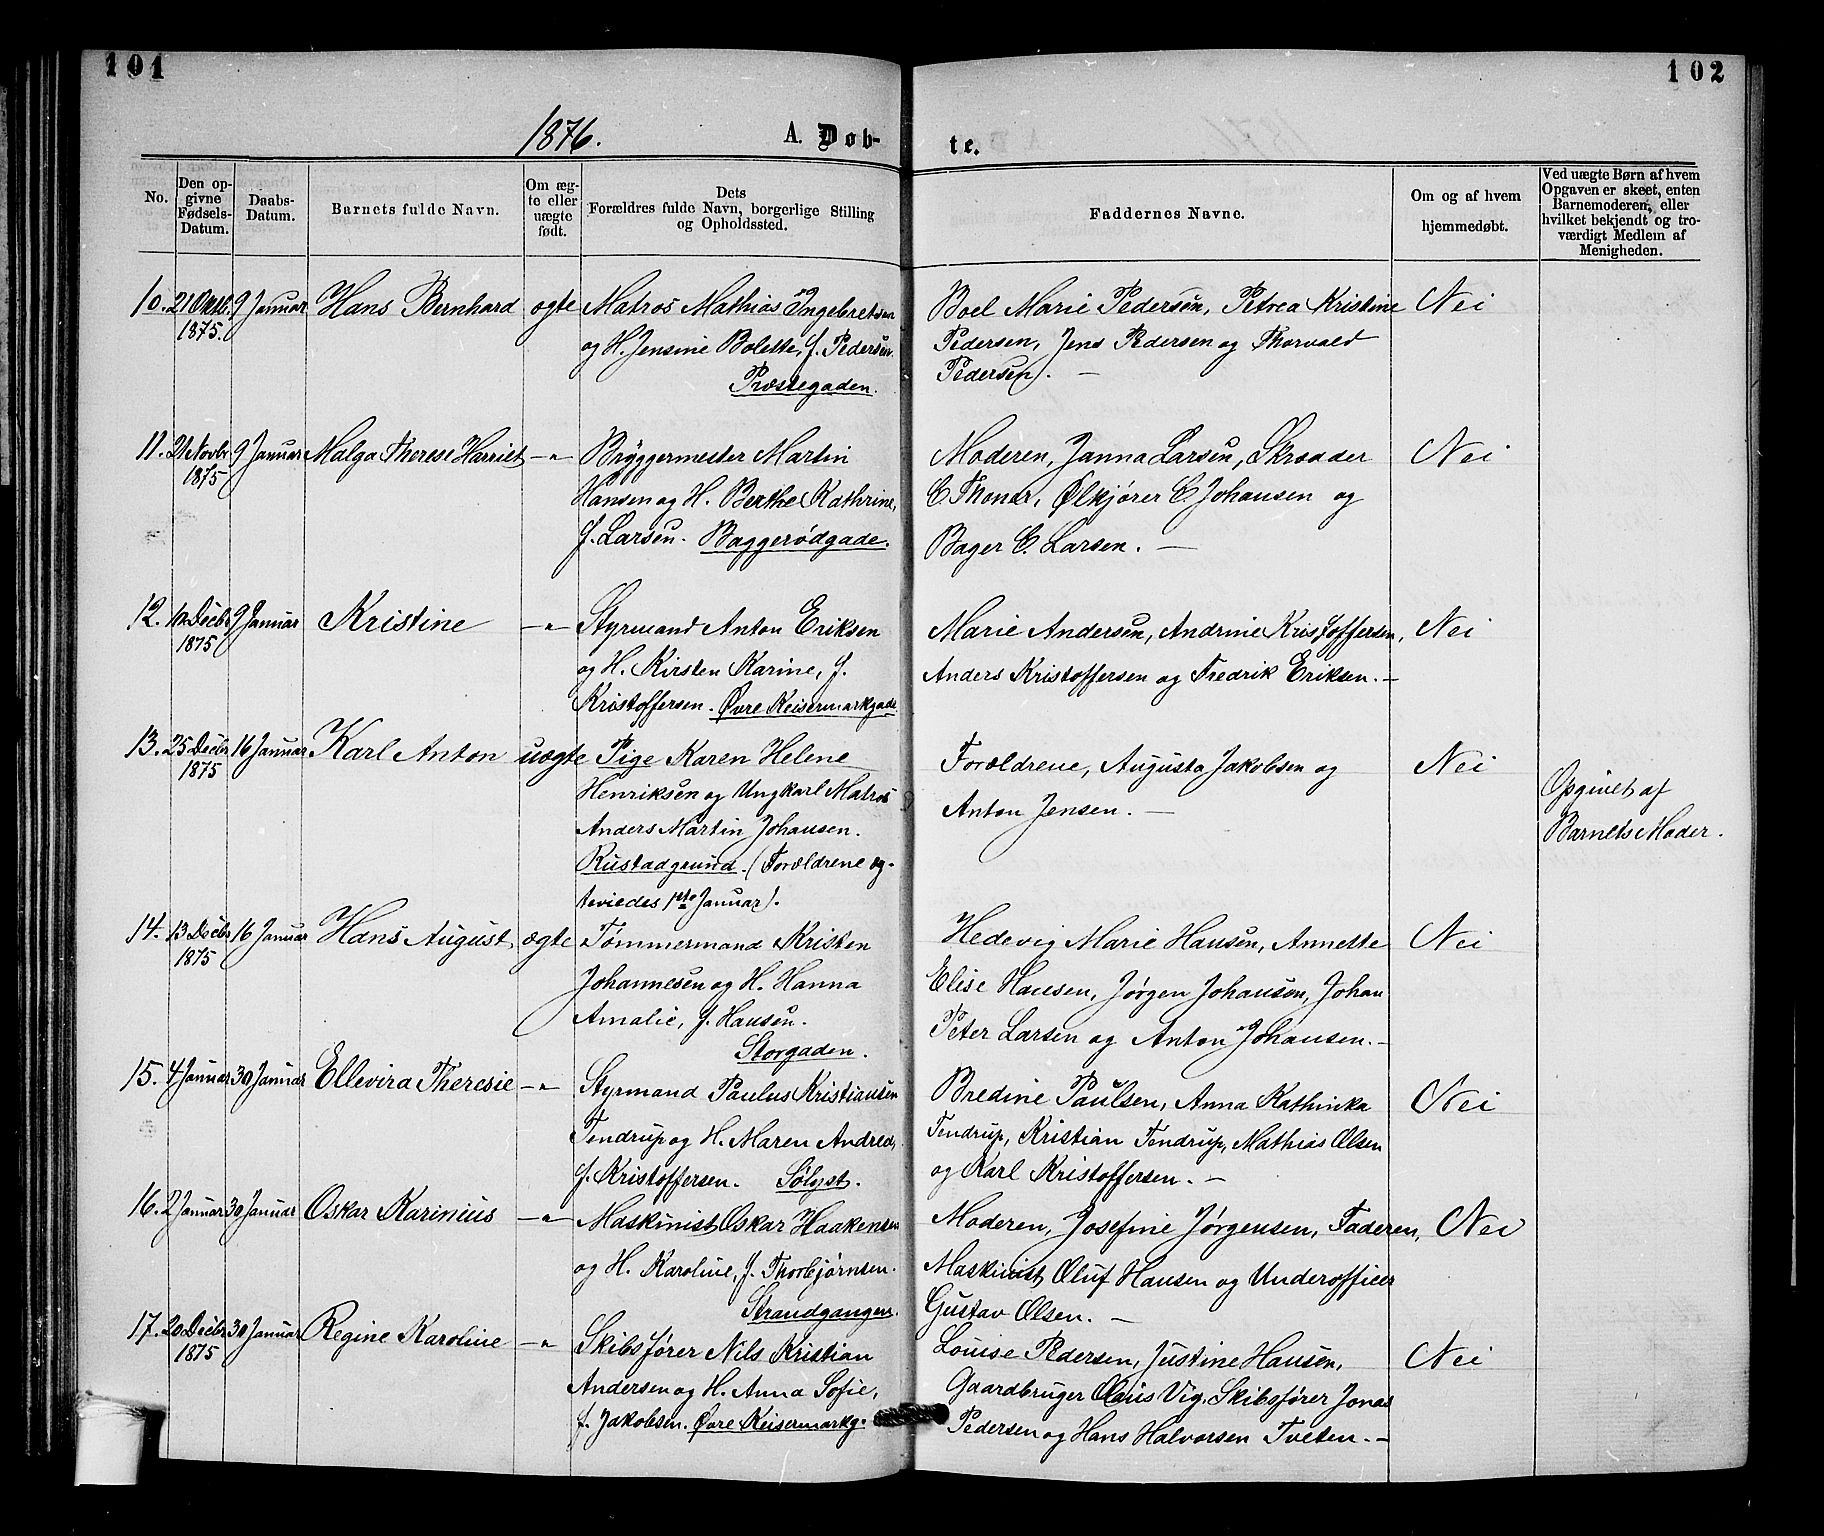 101
102
1876. A. Døb-
te.
No.
Den op-
givne
Fødsels-
Datum.
Daabs-
Datum.
Barnets fulde Navn.
Om æg-
te eller
uægte
født.
Dets
Forældres fulde Navn, borgerlige Stilling
og Opholdssted.
Faddernes Navne.
Om og af hvem
hjemmedøbt.
Ved uægte Børn af hvem
Opgaven er skeet, enten
Barnemoderen, eller
hvilket bekjendt og tro-
værdigt Medlem af
Menigheden.
10. 21 Oktb. 9 Januar Hans Bernhard ægte Matros Mathias Engebretsen
1875.
og H. Jensine Bolette, f. Pedersen.
Præstegaden.
Boel Marie Pedersen, Petrea Kristine Nei
Pedersen, Jens Pedersen og Thorvald
Pedersen. —
11. 21 Novbr 9 Januar Malga Therese Harriet —„— Bryggermester Martin
1875
Hansen og H. Berthe Kathrine,
f. Larsen. Baggerødgade.
Moderen, Janna Larsen, Skrædder Nei
C. Thoner, Ølkjører C. Johansen og
Bager C. Larsen. —
12. Decbr 9 Januar Kristine —„— Styrmand Anton Eriksen
1875
og H. Kirsten Karine, f.
Kristoffersen. Øvre Keisermarkgade
Marie Andersen, Andrine Kristoffersen, Nei
Anders Kristoffersen og Fredrik Eriksen. —
13. 25 Decbr 16 Januar Karl Anton uægte Pige Karen Helene
1875
Henriksen og Ungkarl Matros
Anders Martin Johansen.
Rustadgrund. (Forældrene æg-
teviedes 1ste Januar).
Forældrene, Augusta Jakobsen og Nei
Anton Jensen. —
Opgivet af
Barnets Moder.
14. 13 Decbr 16 Januar Hans August ægte Tømmermand Kristen
1875
Johannesen og H. Hanna
Amalie, f. Hansen.
Storgaden.
Hedevig Marie Hansen, Annette Nei
Elise Hansen, Jørgen Johansen, Johan
Peter Larsen og Anton Johansen. —
15. 4 Januar 30 Januar Ellevira Theresie —„— Styrmand Paulus Kristiansen
Tendrup og H. Maren Andrea,
f. Kristoffersen. Sølyst.
Bredine Paulsen, Anna Kathinka Nei
Tendrup, Kristian Tendrup, Mathias Olsen
og Karl Kristoffersen. —
16. 2 Januar 30 Januar Oskar Karinius —„— Maskinist Oskar Haakensen
og H. Karoline, f. Thorbjørnsen.
Strandgangen.
Moderen, Josefine Jørgensen, Faderen, Nei
Maskinist Oluf Hansen og Underofficer
Gustav Olsen. —
17. 20 Decbr 30 Januar Regine Karoline —„— Skibsfører Nils Kristian
1875
Andersen og H. Anna Sofie,
f. Jakobsen. Øvre Keisermarkg.
Louise Pedersen, Justine Hansen, Nei
Gaardbruger Olaus Vig, Skibsfører Jonas
Pedersen og Hans Halvorsen Tveten. —